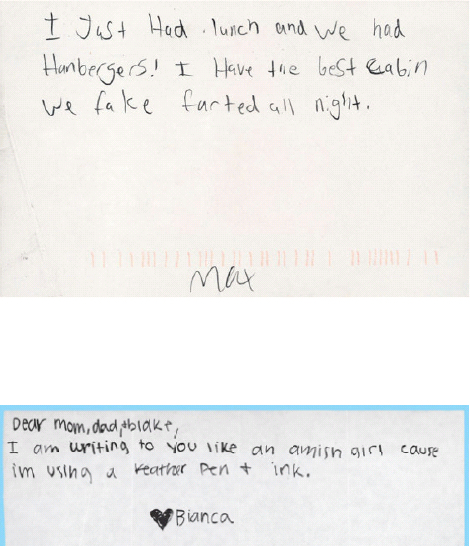 I Just Had lunch and we had
Hanbergers! I Have the best cabin
we fake farted all night.
Max
Dear mom, dad, + blake,
I am writing to you like an amish girl cause
im using a feather pen + ink.
Bianca